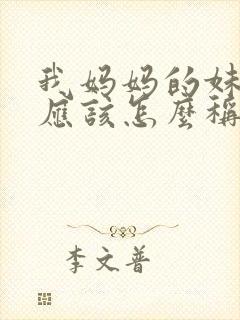 我妈妈的妹
應該怎麼稱
李文普